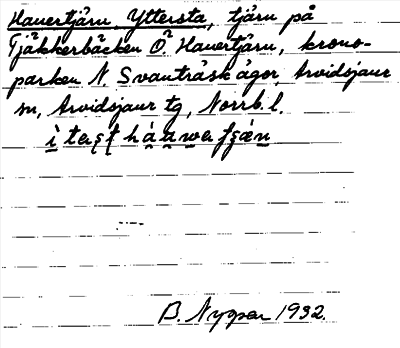 Hauertjärn, Yttersta, tjärn på
Tjäkkerbäcken Ö. Hauertjärn, krono-
parken N. Svanträskågor, Arvidsjaur
sn, Arvidsjaur tg, Norrb. l.
B. Nyman 1932.